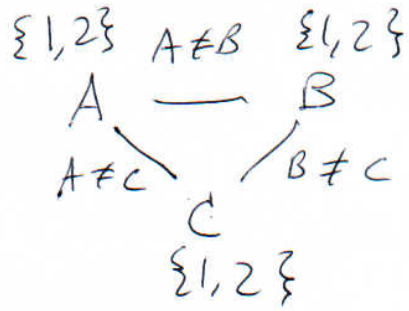 {1,2} A≠B {1,2}
A B
A≠C B≠C
C
{1,2}